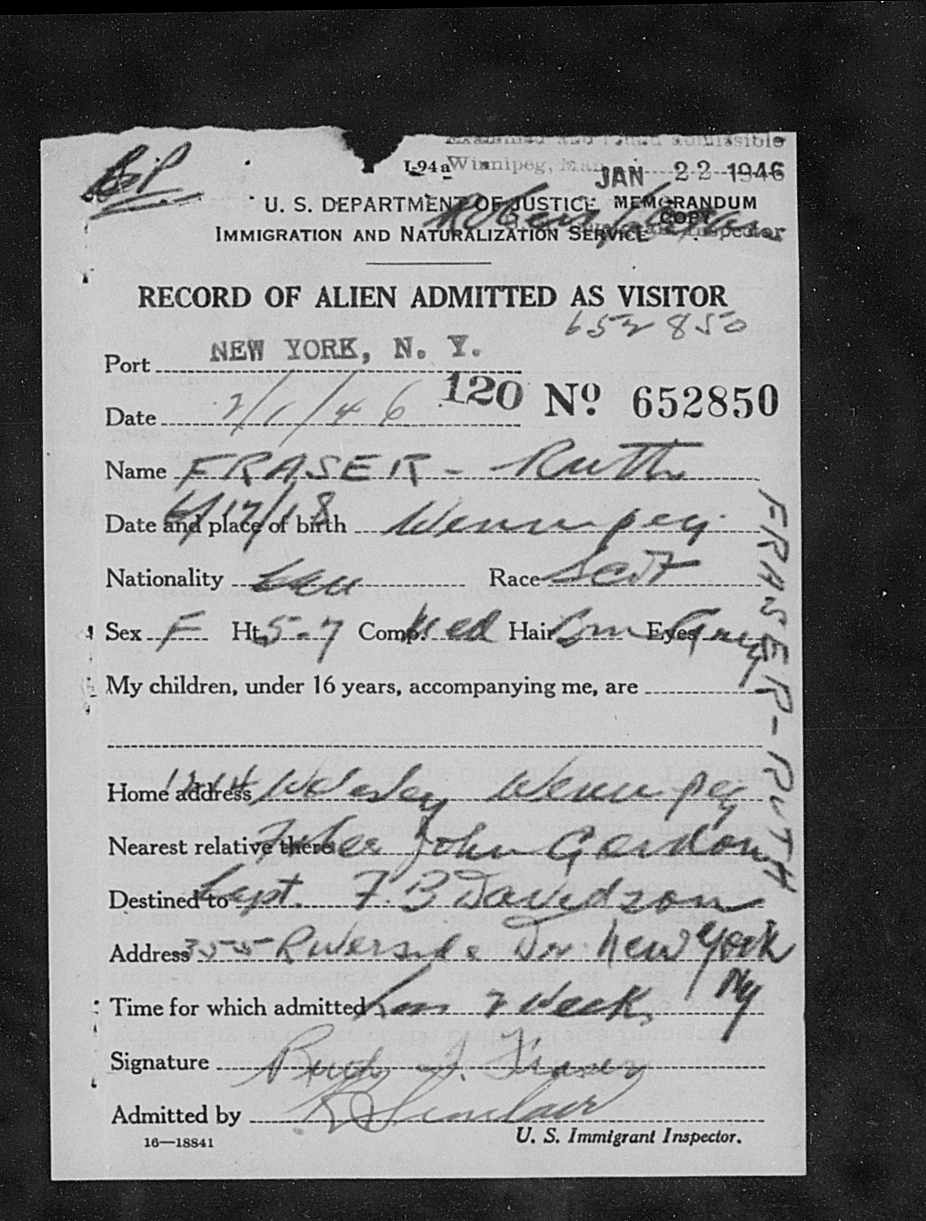 Examined and found admissible
I-94a Winnipeg, Man. JAN 22 1946
U. S. DEPARTMENT OF JUSTICE MEMORANDUM
COPY
IMMIGRATION AND NATURALIZATION SERVICE Inspector
RECORD OF ALIEN ADMITTED AS VISITOR
652850
Port NEW YORK, N. Y.
120 Nº 652850
Date 2/1/46
Name FRASER - Ruth
Date and place of birth 6/17/18 Winnipeg
Nationality Can Race Scot
Sex F Ht. 5-7 Comp. Med Hair Brn Eyes Grey
My children, under 16 years, accompanying me, are
Home address 1214 Wolesley Winnipeg
Nearest relative there John Gordon
Destined to Capt. F. B Davidson
Address 355 Riverside Dr. New York
NY
Time for which admitted 2 Weeks
Signature Ruth I. Fraser
Admitted by Sinclair
16—18841 U. S. Immigrant Inspector.
FRASER - RUTH